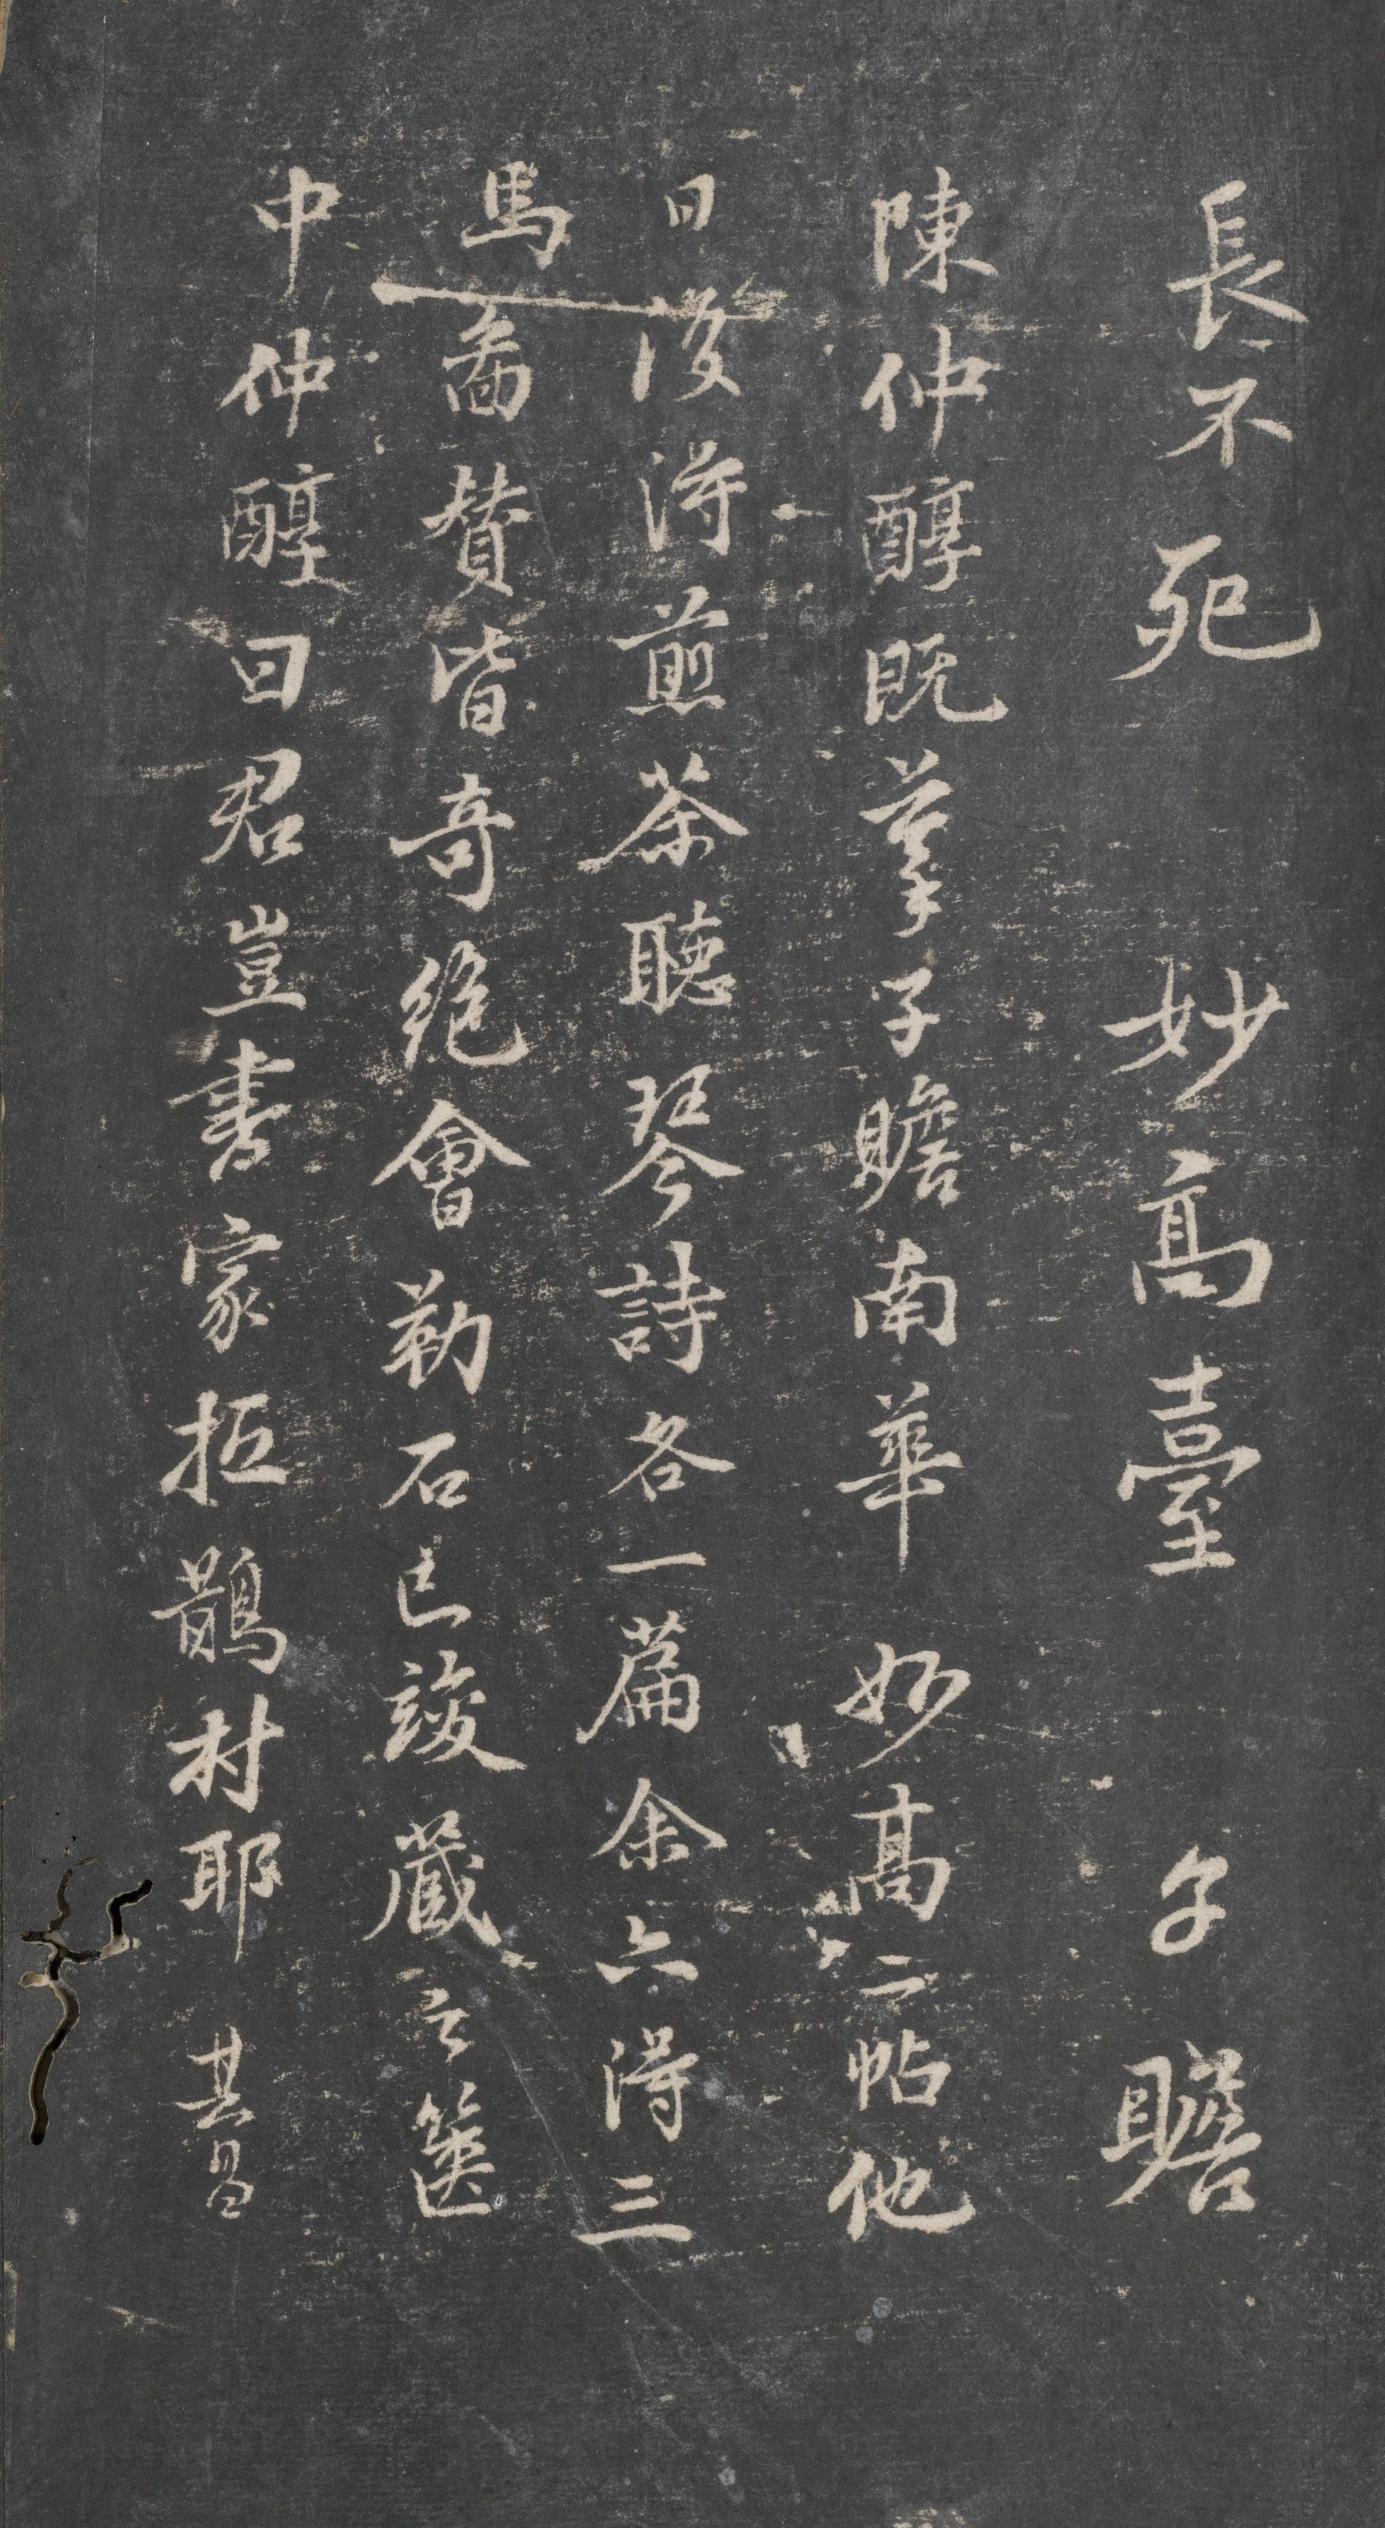 長不死 妙高臺 子瞻
陳仲醇既摹子瞻南華 妙高二帖他
日復得煎茶聽琴詩各一篇余亦得三
馬圖贊皆奇絕會勒石已竣藏之篋
中仲醇曰君豈書家抵鵲村耶 其昌